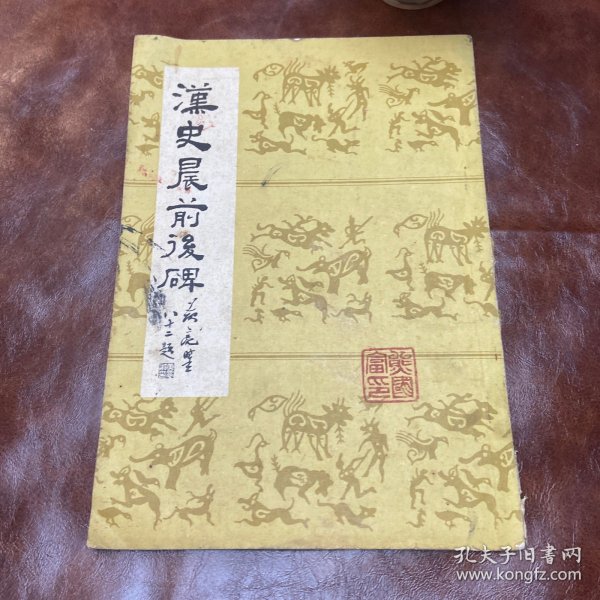 漢史晨前後碑
八十二題
富國
孔夫子旧书网
www.kongfz.com